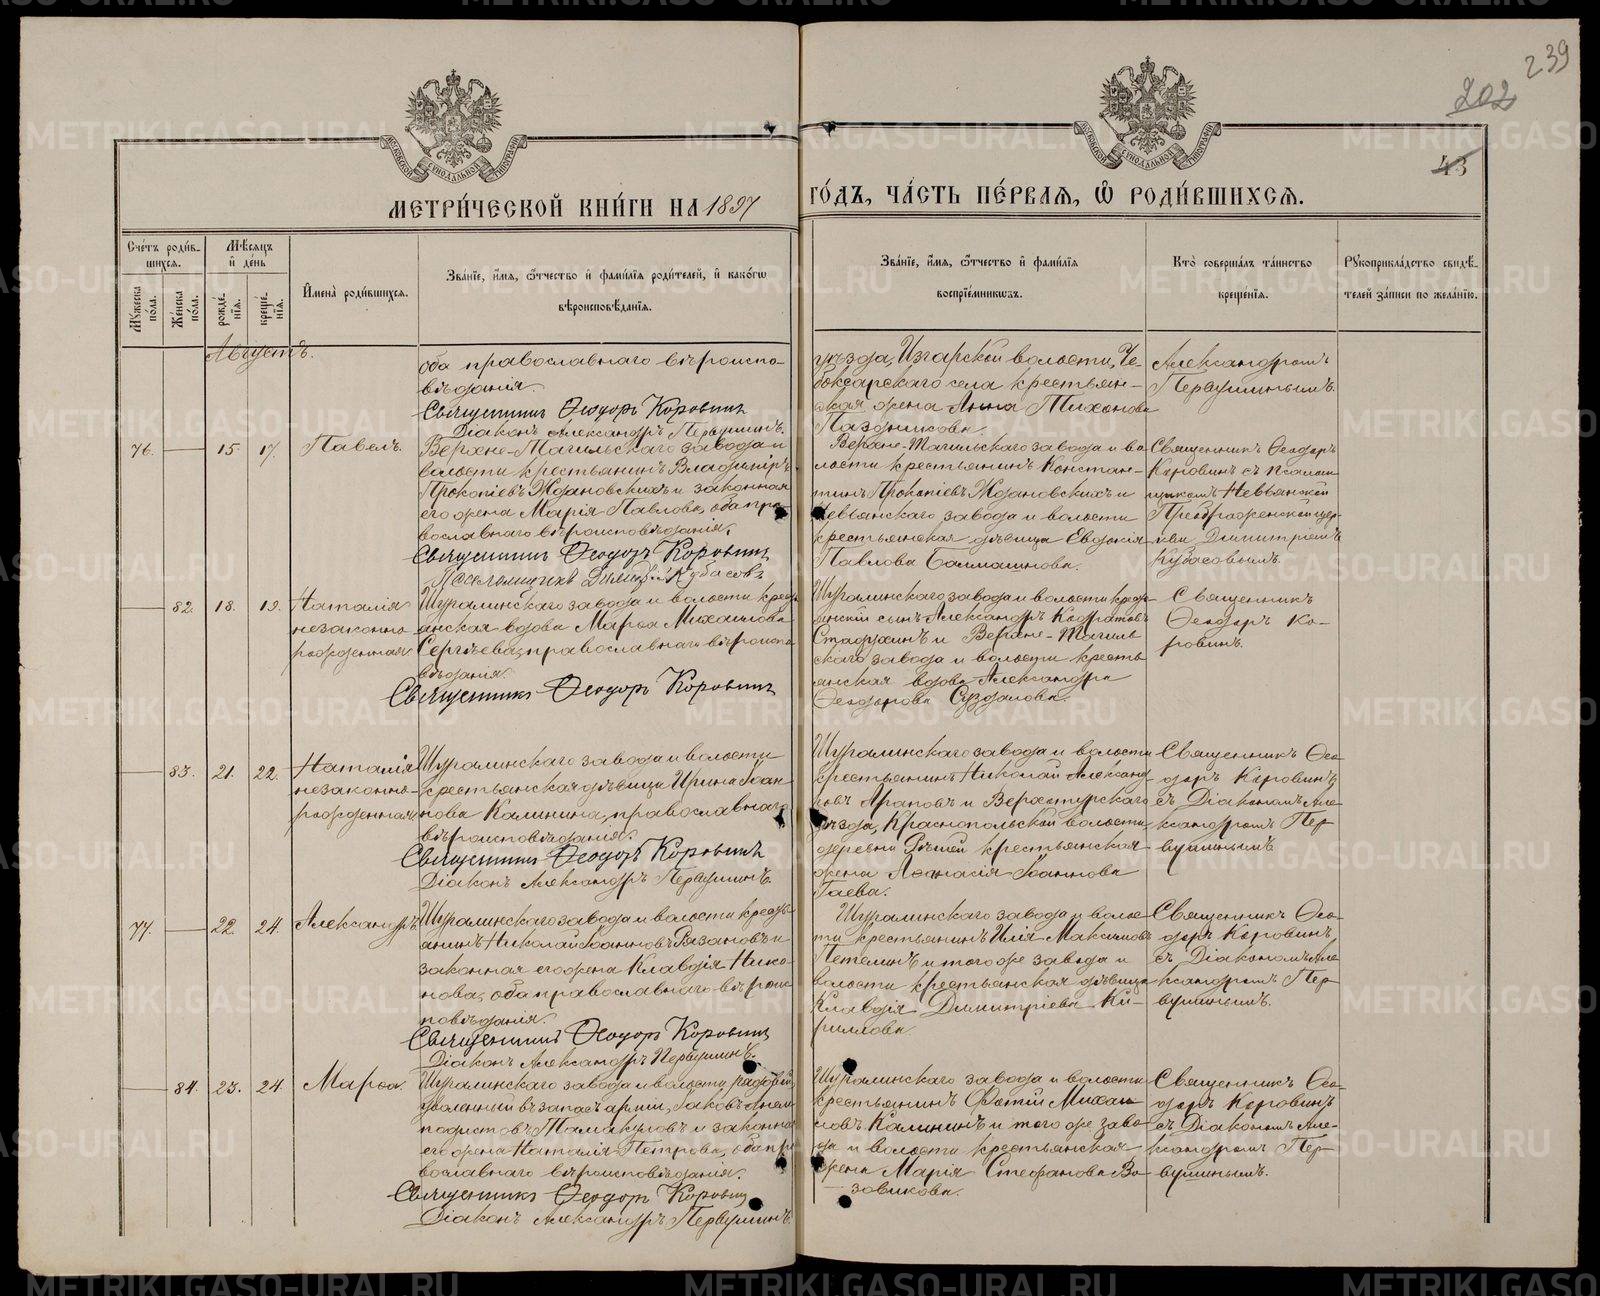 239
202
43
МЕТРИ́ЧЕСКОЙ КНИ́ГИ НА 1897
ГО́ДЪ, ЧА́СТЬ ПЕ́РВАЯ, Ѽ РОДИ́ВШИХСЯ.
МОСКОВСКОЙ СѴНОДАЛЬНОЙ ТИПОГРАФІИ
МОСКОВСКОЙ СѴНОДАЛЬНОЙ ТИПОГРАФІИ
Счетъ роди́в-
шихся.
Мѣсяцъ
и де́нь
Му́жеска по́ла.
Же́нска по́ла.
рожде́-
нія.
креще́-
нія.
Имена̀ роди́вшихся.
Зва́ніе, и́мя, ѻ́тчество и фами́лія роди́телей, и како́гѡ
вѣроисповѣ́данія.
Зва́ніе, и́мя, ѻ́тчество и фами́лія
воспріе́мниковъ.
Кто̀ соверша́лъ та́инство
креще́нія.
Рꙋкоприкла́дство свидѣ́-
телей за́писи по жела́нію.
Августъ.
оба православнаго вѣроиспо-
вѣданія.
Священникъ Ѳеодоръ Коровинъ
Діаконъ Александръ Первушинъ.
уѣзда, Изгарской волости, Че-
боксарскаго села крестьян-
ская жена Анна Тихонова
Паздникова
Александромъ
Первушинымъ.
76.
15.
17.
Павелъ.
Верхне-Тагильскаго завода и
волости крестьянинъ Владиміръ
Прокопіевъ Ждановскихъ и законная
его жена Марія Павлова, оба пра-
вославнаго вѣроисповѣданія.
Священникъ Ѳеодоръ Коровинъ
Псаломщикъ Димитрій Кубасовъ
Верхне-Тагильскаго завода и во
лости крестьянинъ Констан-
тинъ Прокопіевъ Ждановскихъ и
Невьянскаго завода и волости
крестьянская дѣвица Евдокія
Павлова Балмашнова.
Священникъ Ѳеодоръ
Коровинъ съ псалом
щикомъ Невьянской
Преображенской цер
кви Димитріемъ
Кубасовымъ.
82.
18.
19.
Наталія
незаконно-
рожденная
Шуралинскаго завода и волости кресть
янская вдова Марѳа Михаилова
Сергѣева, православнаго вѣроиспо
вѣданія.
Священникъ Ѳеодоръ Коровинъ
Шуралинскаго завода и волости кресть
янскій сынъ Александръ Кодратовъ
Стафхинъ и Верхне-Тагиль
скаго завода и волости кресть
янская вдова Александра
Ѳеодорова Суздалова.
Священникъ
Ѳеодоръ Ко-
ровинъ.
83.
21.
22.
Наталія
незаконно-
рожденная
Шуралинскаго завода и волости
крестьянская дѣвица Ирина Іоан
нова Калинина, православнаго
вѣроисповѣданія.
Священникъ Ѳеодоръ Коровинъ
Діаконъ Александръ Первушинъ.
Шуралинскаго завода и волости
крестьянинъ Николай Александ
ровъ Араповъ и Верхотурскаго
уѣзда, Краснопольской волости
деревни крестьянская
жена Аѳанасія Іоаннова
Гаева.
Священникъ Ѳео-
доръ Коровинъ
съ Діакономъ Але-
ксандромъ Пер-
вушинымъ
77.
22.
24.
Александръ
Шуралинскаго завода и волости кресть
янинъ Николай Іоанновъ Рязановъ и
законная его жена Клавдія Нико-
нова, оба православнаго вѣроис
повѣданія.
Священникъ Ѳеодоръ Коровинъ
Діаконъ Александръ Первушинъ.
Шуралинскаго завода и волос-
ти крестьянинъ Илія Максимовъ
Петелинъ и того же завода и
волости крестьянская дѣвица
Клавдія Димитріева Ки-
риллова
Священникъ Ѳео-
доръ Коровинъ
съ Діакономъ Але
ксандромъ Пер-
вушинымъ.
84.
23.
24.
Марѳа.
Шуралинскаго завода и волости, рядовой,
уволенный въ запасъ арміи, Іаковъ Анем
подистовъ Тамакуловъ и законная
его жена Наталія Петрова, оба пра
вославнаго вѣроисповѣданія.
Священникъ Ѳеодоръ Коровинъ
Діаконъ Александръ Первушинъ.
Шуралинскаго завода и волости
крестьянинъ Фотій Михаи
ловъ Калининъ и того же заво-
да и волости крестьянская
жена Марія Стефанова Во-
зовикова.
Священникъ Ѳео-
доръ Коровинъ
съ Діакономъ Але-
ксандромъ Пер-
вушинымъ.
METRIKI.GASO-URAL.RU